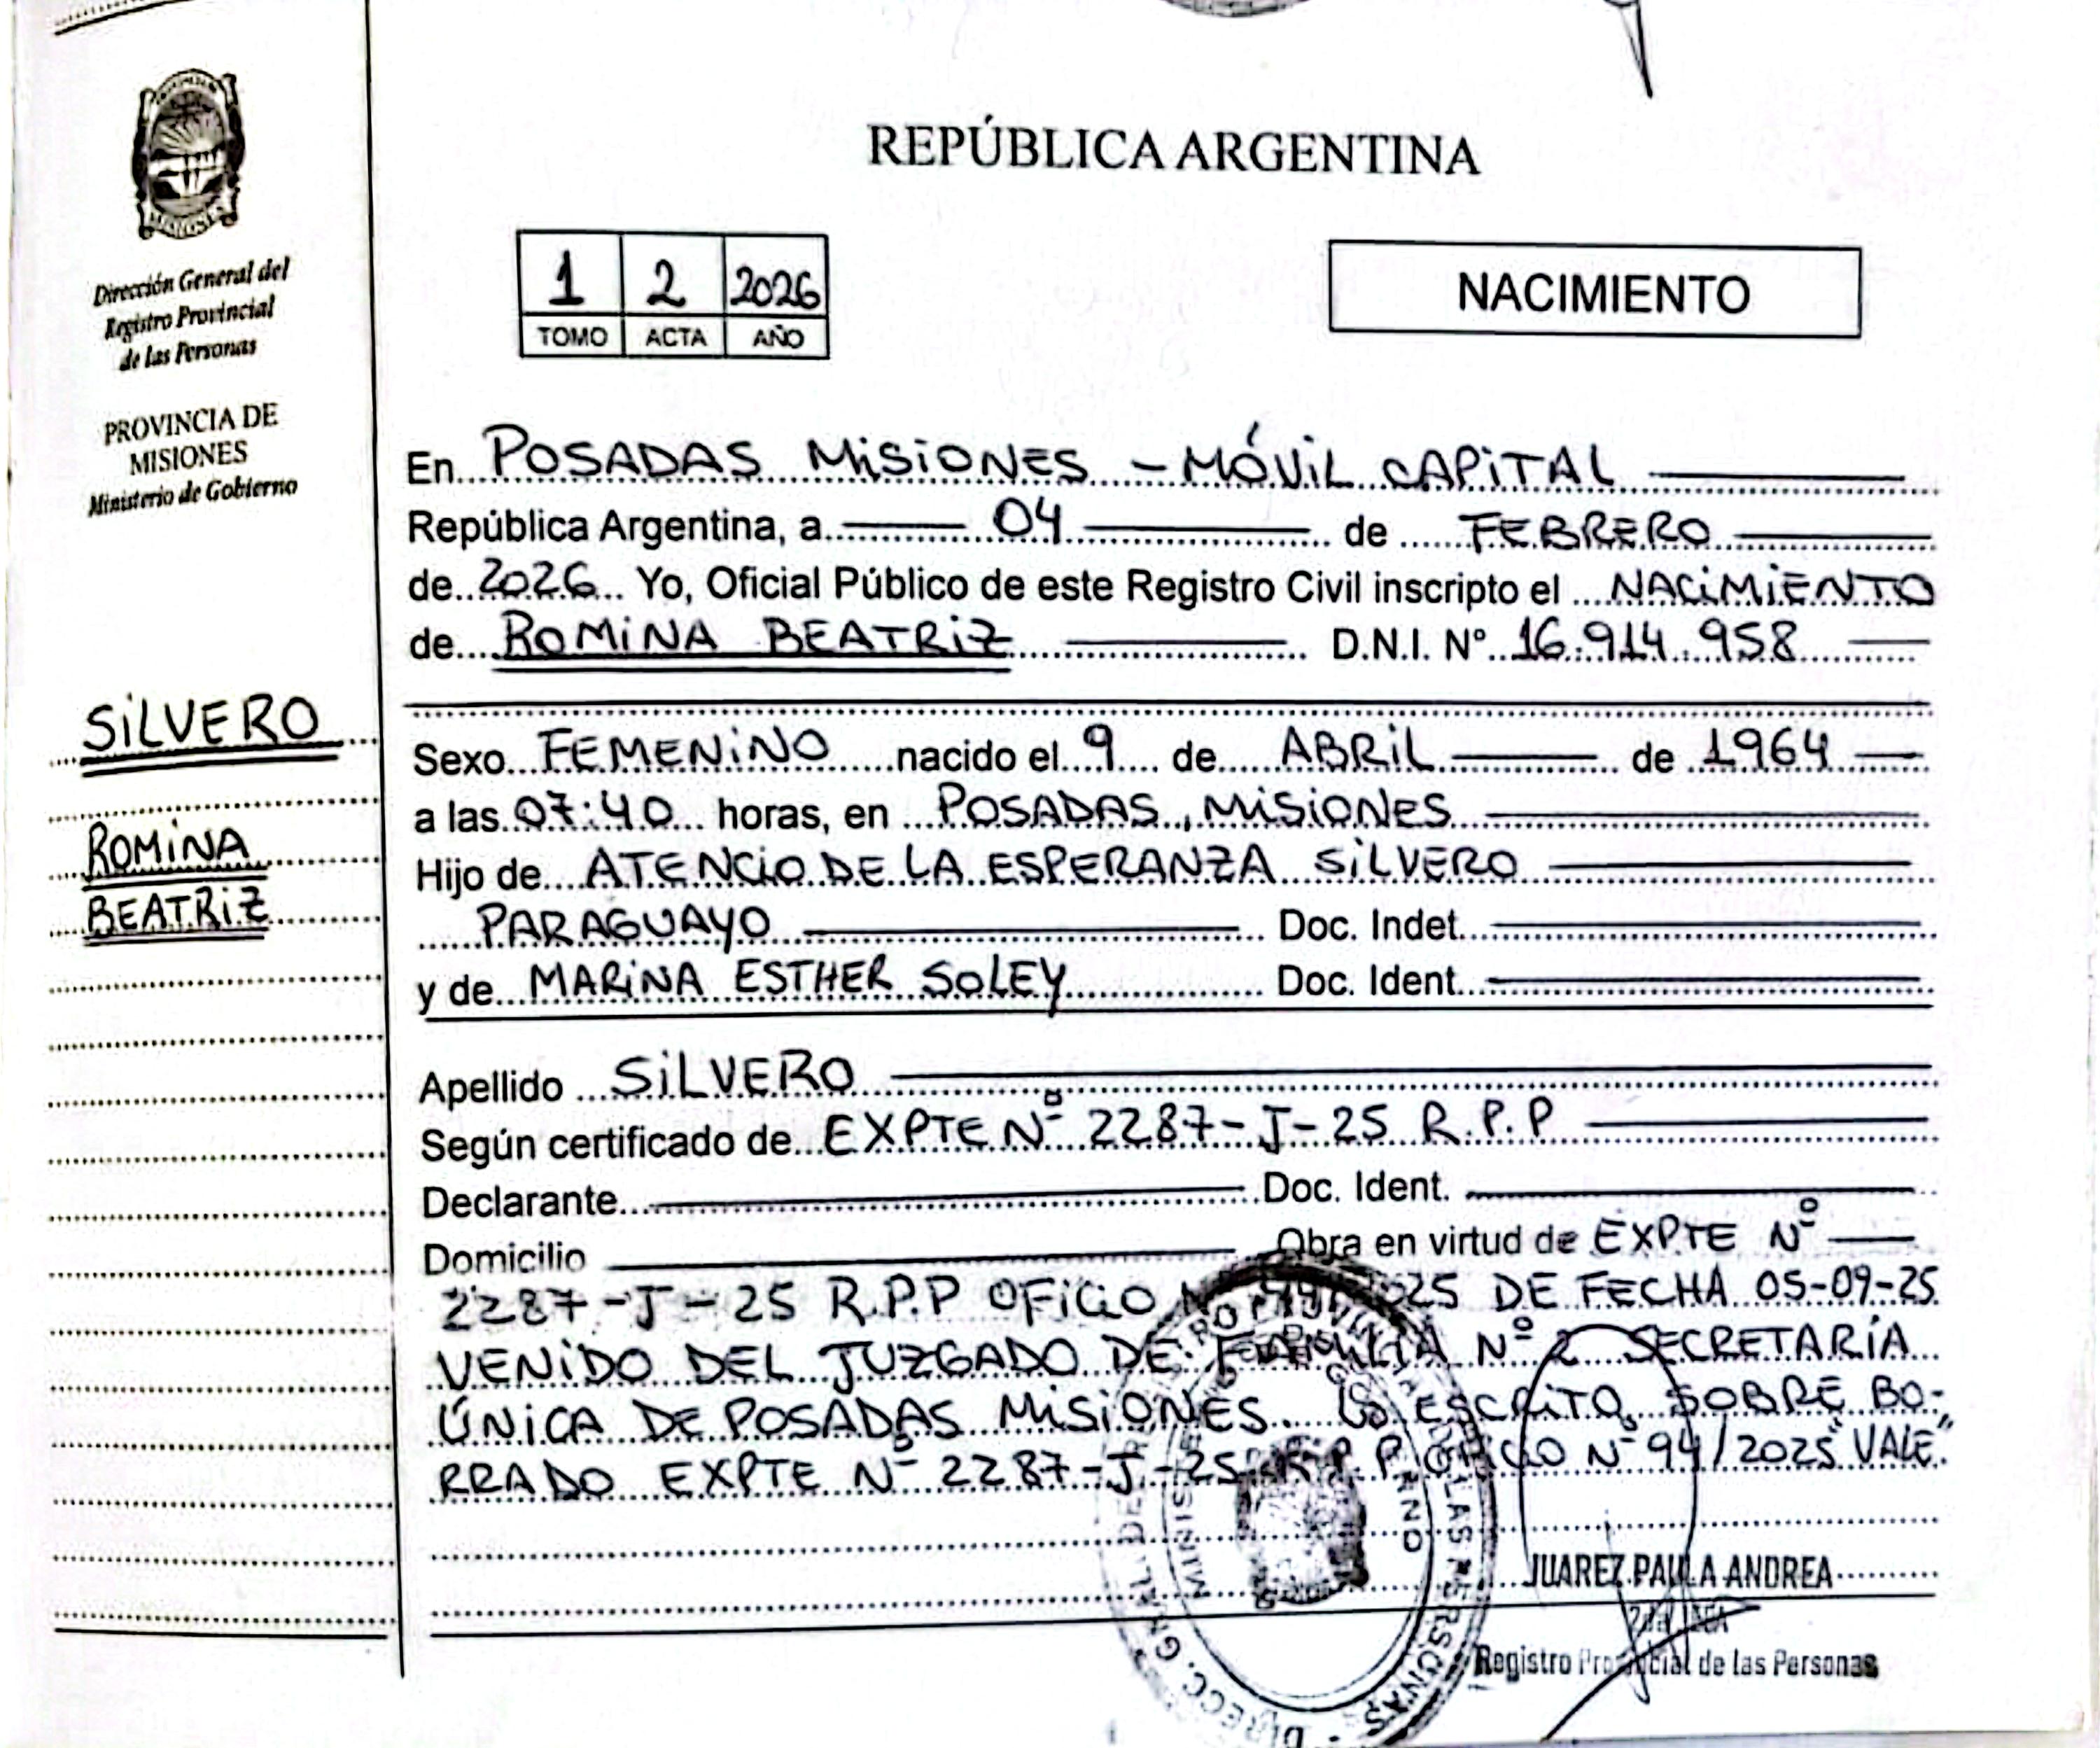 Dirección General del
Registro Provincial
de las Personas
PROVINCIA DE
MISIONES
Ministerio de Gobierno
SILVERO
ROMINA
BEATRIZ
REPÚBLICA ARGENTINA
1 2 2026
TOMO ACTA AÑO
NACIMIENTO
En POSADAS MISIONES - MÓVIL CAPITAL
República Argentina, a 04 de FEBRERO
de 2026 Yo, Oficial Público de este Registro Civil inscripto el NACIMIENTO
de ROMINA BEATRIZ D.N.I. Nº 16.914.958
Sexo FEMENINO nacido el 9 de ABRIL de 1964
a las 07:40 horas, en POSADAS, MISIONES
Hijo de ATENCIO DE LA ESPERANZA SILVERO
PARAGUAYO Doc. Indet.
y de MARINA ESTHER SOLEY Doc. Ident.
Apellido SILVERO
Según certificado de EXPTE Nº 2287-J-25 R.P.P
Declarante Doc. Ident.
Domicilio Obra en virtud de EXPTE Nº
2287-J-25 R.P.P OFICIO DE FECHA 05-09-25
VENIDO DEL JUZGADO DE FAMILIA Nº 2 SECRETARÍA
ÚNICA DE POSADAS MISIONES. LO ESCRITO SOBRE BO-
RRADO EXPTE Nº 2287-J-25 R.P.P OFICIO Nº 94/2025 "VALE".
JUAREZ PAULA ANDREA
Registro Provincial de las Personas